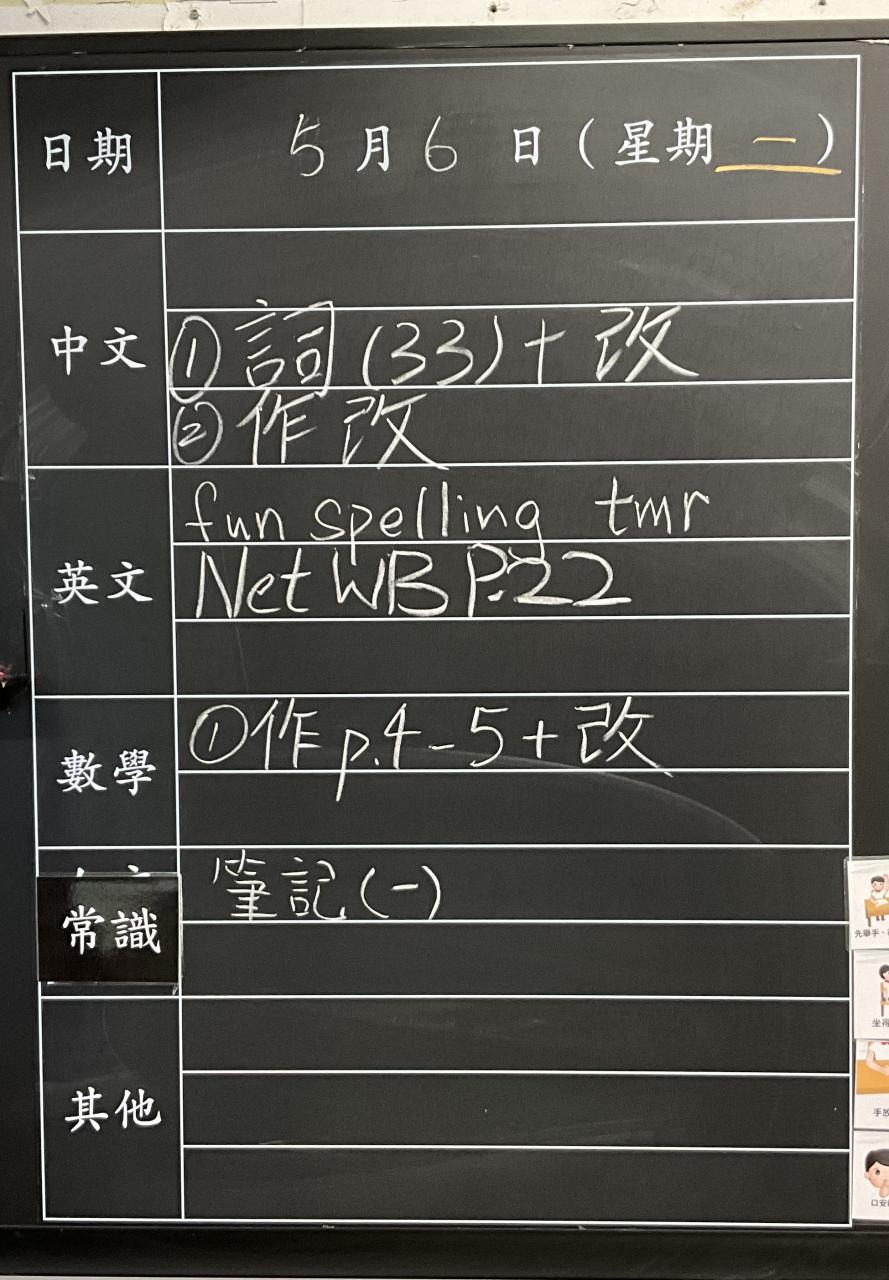 日期 5月6日(星期一)
中文
①詞(33)+改
②作改
英文
fun spelling tmr
Net WB P.22
數學
①作p.4-5+改
常識
筆記(一)
其他
先舉手、
坐得
手放
口安